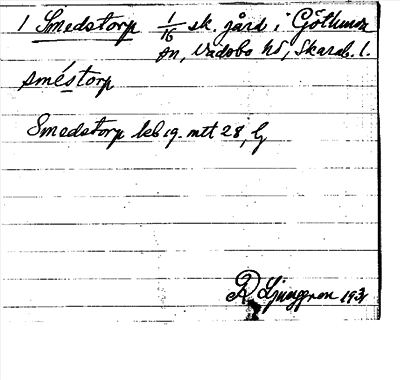 1 Smedstorp 1/16 sk. gård i Götlunda
sn, Vadsbo hd, Skarab. l.
sméstorp
Smedstorp leb 19. mtt 28, lj
R Ljunggren 193